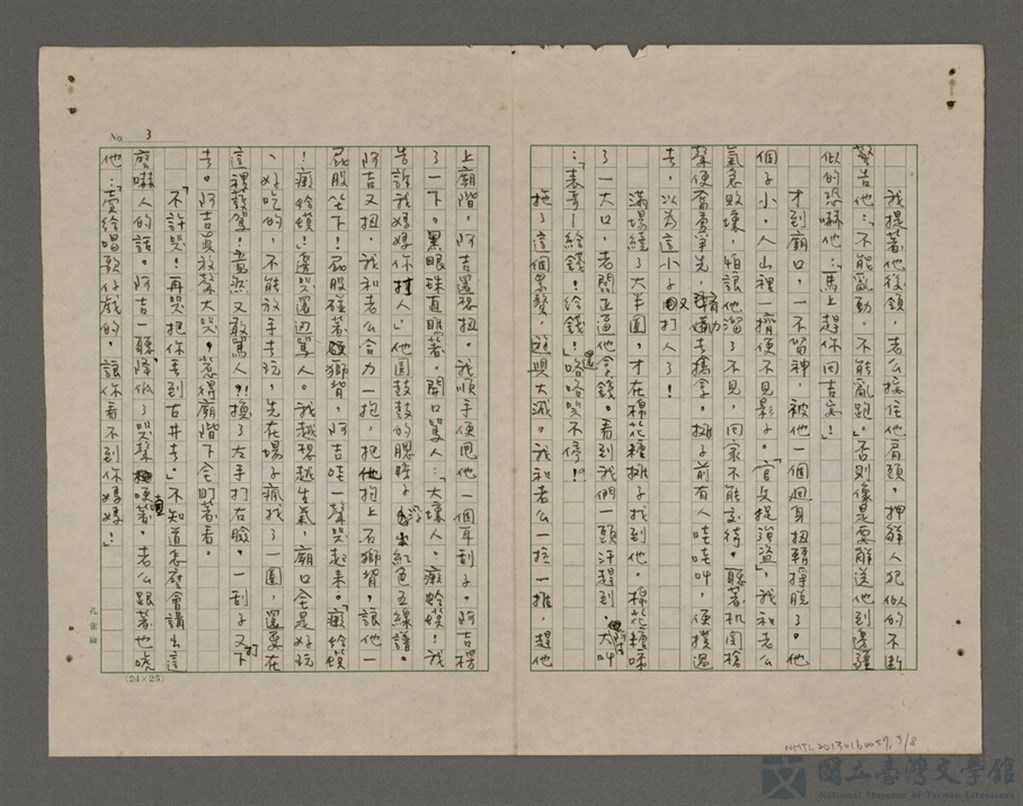 我提著他後領,老么接住他肩頭,押解人犯似的不斷
警告他:「不能亂動,不能亂跑。」否則像是要解送他到邊疆
似的恐嚇他:「馬上趕你回吉安!」
才到廟口,一不留神,被他一個迴身扭轉掙脫了。他
個子小,人山裡一擠便不見影子。「官兵捉強盜」,我和老么
氣急敗壞,怕讓他溜了不見,回家不能交待。聽著机関槍
聲便奮勇爭先,
去擒拿。攤子前有人哇哇叫,便撲過
去,以為這小子又打人了!
滿場繞了大半圈,才在棉花糖攤子找到他。棉花糖咪
了一大口,老闆正逼他拿錢。看到我們一頭汗趕到,大叫
:「表哥—給錢!給錢!」還咯咯笑不停!
拖了這個累贅,遊興大減。我和老么一拉一推,趕他
上廟階,阿吉還裡扭。我順手便甩他一個耳刮子。阿吉楞
了一下。黑眼珠直眶著。開口罵人:「大壞人。癩蛤蟆!我
告訴我媽媽你打人。」他圓鼓鼓的腮膀子浮出紅色五線譜。
阿吉又扭,我和老么合力一抱,把他抱上石獅背,讓他一
屁股坐下!屁股碰著硬獅背,阿吉哇一聲哭起來。「癩蛤蟆
!癩蛤蟆!」邊哭還邊罵人。我越想越生氣,廟口全是好玩
、好吃的,不能放手去玩,先在場子瘋找了一圈,還要在
這裡護駕!竟然又敢罵人?!換了左手打右臉。一刮子又打下
去。阿吉興放聲大哭,惹得廟階下全盯著看。
「不許哭!再哭把你丟到古井去。」不知道怎麼會講出這
麼嚇人的話。阿吉一聽,降低了哭聲直哽著。老么跟著也唬
他:「賣給唱歌仔戲的,讓你看不到你媽媽!」
No. 3
(24×25)
孔雀牌
NMTL20130160057, 3/8
國立臺灣文學館
National Museum of Taiwan Literature